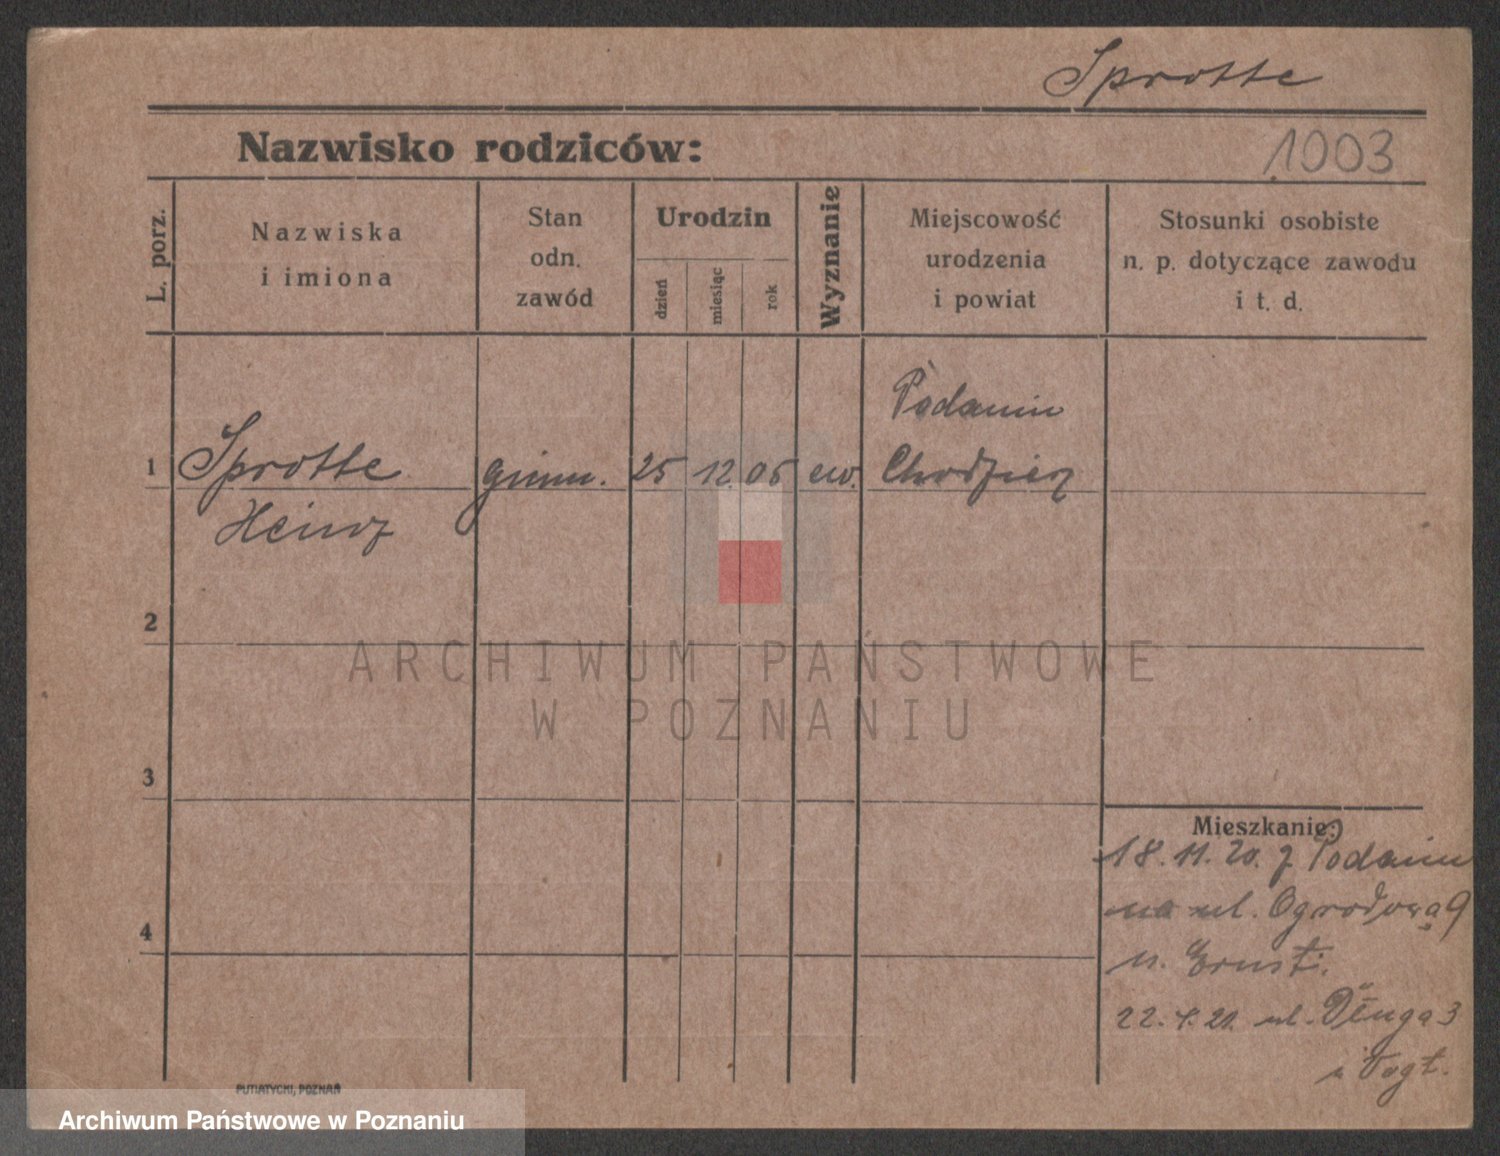 Sprotte
Nazwisko rodziców:
1003
L. porz.
Nazwiska
i imiona
Stan
odn.
zawód
Urodzin
dzień
miesiąc
rok
Wyznanie
Miejscowość
urodzenia
i powiat
Stosunki osobiste
n. p. dotyczące zawodu
i t. d.
Podanin
1 Sprotte gimn. 25 12. 05 ew. Chodzież
Heinz
2
ARCHIWUM PAŃSTWOWE
W POZNANIU
3
Mieszkanie:
18. 11. 20. z Podanin
na ul. Ogrodową 9
u. Ernst.
4
22. 4. 21. ul. Długa 3
Vogt.
PUTIATYCKI, POZNAŃ
Archiwum Państwowe w Poznaniu